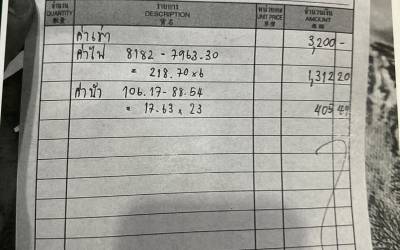 จำนวน รายการ หน่วยละ จำนวนเงิน
QUANTITY DESCRIPTION UNIT PRICE AMOUNT
數量 買名 單價 銀額
ค่าเช่า 3,200 -
ค่าไฟ 8182 - 7963.30
= 218.70 x 6 1,312 20
ค่าน้ำ 106.17 - 88.54
= 17.63 x 23 405 49